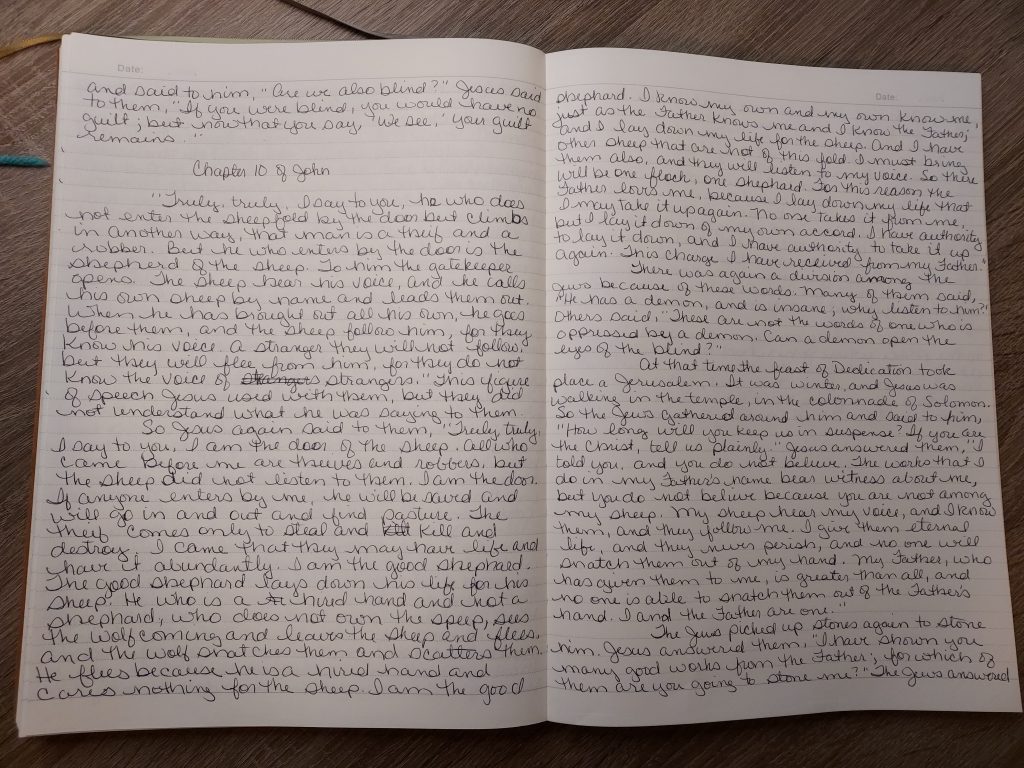 Date:
and said to him, "Are we also blind?" Jesus said
to them, "If you were blind, you would have no
guilt; but now that you say, 'We see,' your guilt
remains."
Chapter 10 of John
"Truly, truly, I say to you, he who does
not enter the sheepfold by the door but climbs
in another way, that man is a theif and a
robber. But he who enters by the door is the
shepherd of the sheep. To him the gatekeeper
opens. The sheep hear his voice, and he calls
his own sheep by name and leads them out.
When he has brought out all his own, he goes
before them, and the sheep follow him, for they
know his voice. A stranger they will not follow,
but they will flee from him, for they do not
know the voice of strangers." This figure
of speech Jesus used with them, but they did
not understand what he was saying to them.
So Jesus again said to them, "Truly, truly,
I say to you, I am the door of the sheep. All who
came before me are theives and robbers, but
the sheep did not listen to them. I am the door.
If anyone enters by me, he will be saved and
will go in and out and find pasture. The
theif comes only to steal and kill and
destroy. I came that they may have life and
have it abundantly. I am the good shephard.
The good shephard lays down his life for his
sheep. He who is a hired hand and not a
shephard, who does not own the speep, sees
the wolf coming and leaves the sheep and flees,
and the wolf snatches them and scatters them.
He flees because he is a hired hand and
cares nothing for the sheep. I am the good
Date:
shephard. I know my own and my own know me,
just as the Father knows me and I know the Father;
and I lay down my life for the sheep. And I have
other sheep that are not of this fold. I must bring
them also, and they will listen to my voice. So there
will be one flock, one shephard. For this reason the
Father loves me, because I lay down my life that
I may take it up again. No one takes it from me,
but I lay it down of my own accord. I have authority
to lay it down, and I have authority to take it up
again. This charge I have received from my Father."
There was again a division among the
Jews because of these words. Many of them said,
"He has a demon, and is insane; why listen to him?"
Others said, "These are not the words of one who is
oppressed by a demon. Can a demon open the
eyes of the blind?"
At that time the feast of Dedication took
place a Jerusalem. It was winter, and Jesus was
walking in the temple, in the colonnade of Solomon.
So the Jews gathered around him and said to him,
"How long will you keep us in suspense? If you are
the Christ, tell us plainly." Jesus answered them, "I
told you, and you do not believe. The works that I
do in my Father's name bear witness about me,
but you do not believe because you are not among
my sheep. My sheep hear my voice, and I know
them, and they follow me. I give them eternal
life, and they never perish, and no one will
snatch them out of my hand. My Father, who
has given them to me, is greater than all, and
no one is able to snatch them out of the Father's
hand. I and the Father are one."
The Jews picked up stones again to stone
him. Jesus answered them, "I have shown you
many good works from the Father; for which of
them are you going to stone me?" The Jews answered